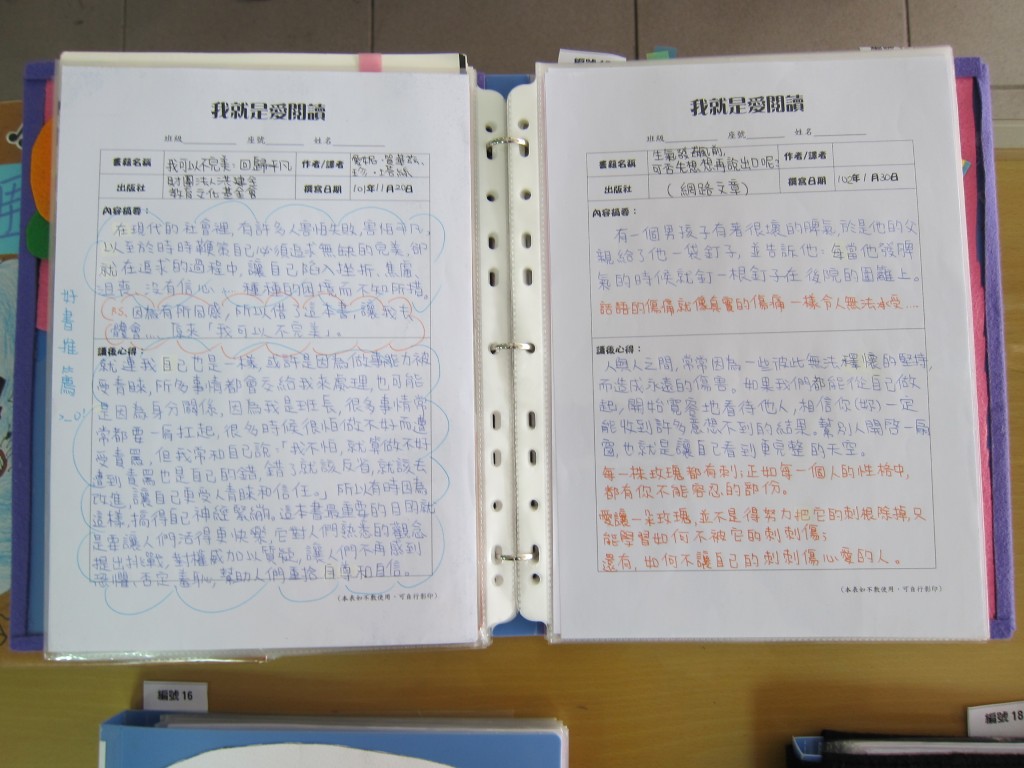 我就是愛閱讀
班級 座號 姓名
書籍名稱 我可以不完美．回歸平凡 作者/譯者
出版社 財團法人洪建全教育文化基金會 撰寫日期 101年11月20日
內容摘要：
在現代的社會裡，有許多人害怕失敗，害怕平凡，
以至於時時觀察自己必須追求無缺的完美，卻
就在追求的過程中，讓自己陷入挫折、焦慮、
沮喪、沒有信心…種種的困境而不知所措。
P.S. 因為有所同感，所以借了這本書，讓我去
體會…，原來「我可以不完美」。
好書推薦
讀後心得：
就連我自己也是一樣，或許是因為做事能力被
受青睞，所多事情都會交給我來處理，也可能
是因為身分關係，因為我是班長，很多事情常
常都要一肩扛起，很多時候很怕做不好而遭
受責罵，但我常和自己說：「我不怕，就算做不好
遭到責罵也是自己的錯，錯了就該反省，就該去
改進，讓自己更受人青睞和信任。」所以有時因為
這樣，搞得自己神經緊繃。這本書最重要的目的就
是要讓人們活得更快樂，它對人們熟悉的觀念
提出挑戰，對權威加以質疑，讓人們不再感到
恐懼、否定、羞恥，幫助人們重拾自尊和自信。
(本表如不敷使用，可自行影印)
我就是愛閱讀
班級 座號 姓名
書籍名稱 生氣發飆前，可否先想想再說出口呢？ 作者/譯者
出版社 (網路文章) 撰寫日期 102年1月30日
內容摘要：
有一個男孩子有著很壞的脾氣，於是他的父
親給了他一袋釘子，並告訴他：每當他發脾
氣的時候就釘一根釘子在後院的圍籬上。
話語的傷痛就像真實的傷痛一樣令人無法承受…
讀後心得：
人與人之間，常常因為一些彼此無法釋懷的堅持，
而造成永遠的傷害。如果我們都能從自己做
起，開始寬容地看待他人，相信你(妳)一定
能收到許多意想不到的結果。幫別人開啓一扇
窗，也就是讓自己看到更完整的天空。
每一株玫瑰都有刺；正如每一個人的性格中，
都有你不能容忍的部份。
愛護一朵玫瑰，並不是得努力把它的刺根除掉，又
能學習如何不被它的刺刺傷；
還有，如何不讓自己的刺刺傷心愛的人。
(本表如不敷使用，可自行影印)
編號 16
編號 18